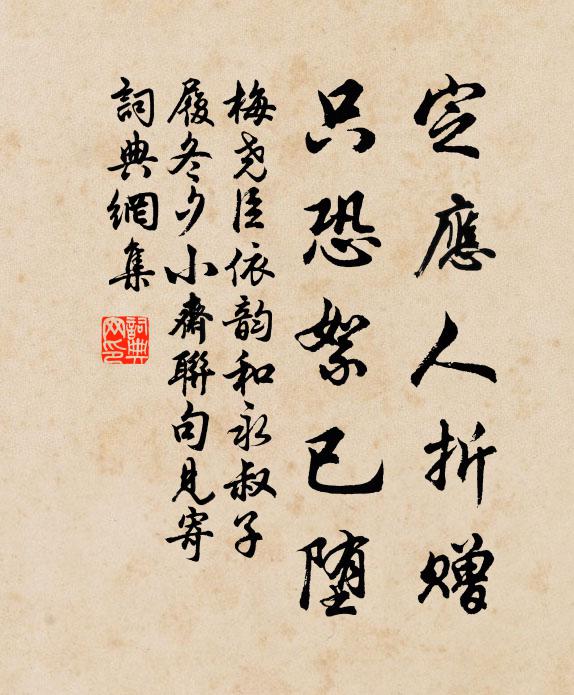 定應人折贈
只恐絮已墮
梅堯臣依韵和永叔子
履冬夕小齋聯句見寄
詞典網集
詞典網印